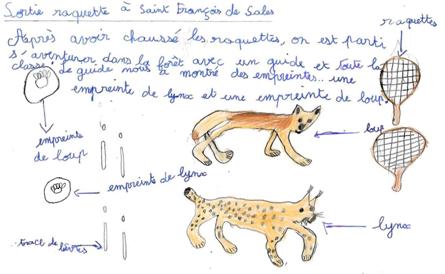 Sortie raquette à Saint François de Sales
raquettes
Après avoir chaussé les raquettes on est parti
s'aventurer dans la forêt avec un guide et toute la
classe. Le guide nous a montré des empreintes... une
empreinte de lynx et une empreinte de loup.
empreinte
de loup
loup
empreinte de lynx
lynx
trace de lièvres